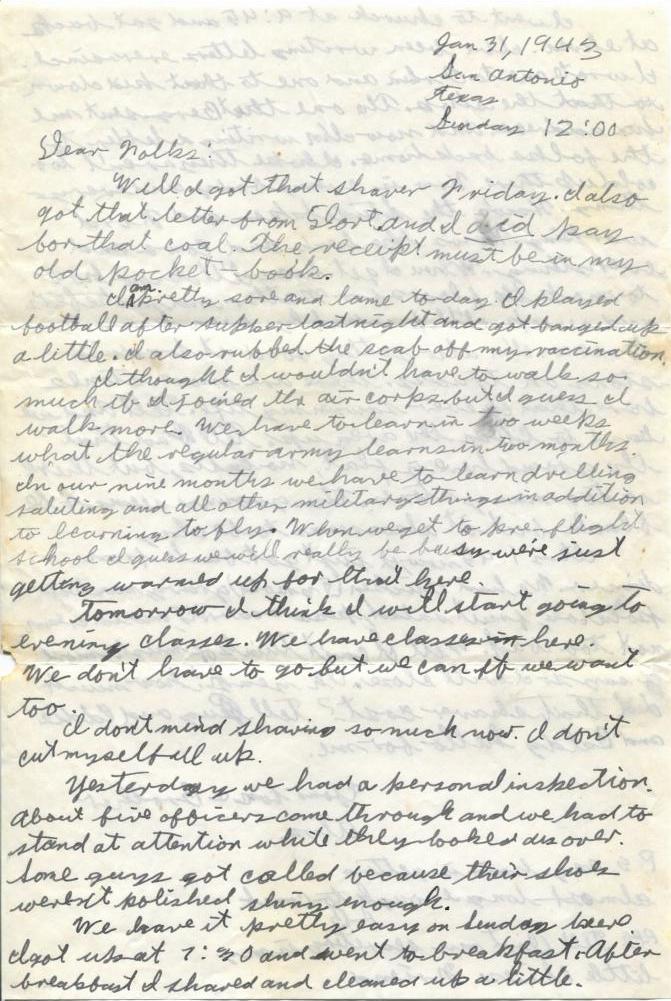 Jan 31, 1943
San Antonio
Texas
Sunday 12:00
Dear Folks:
Well I got that shaver Friday. I also
got that letter from Dort and I did pay
for that coal. The receipt must be in my
old pocket-book.
I am pretty sore and lame to-day. I played
football after supper last night and got banged up
a little. I also rubbed the scab off my vaccination.
I thought I wouldn't have to walk so
much if I joined the air corps but I guess I
walk more. We have to learn in two weeks
what the regular army learns in two months.
In our nine months we have to learn drilling
saluting and all other military things in addition
to learning to fly. When we get to pre-flight
school I guess we will really be busy we're just
getting warmed up for that here.
Tomorrow I think I will start going to
evening classes. We have classes in here.
We don't have to go but we can if we want
too.
I don't mind shaving so much now. I don't
cut myself all up.
Yesterday we had a personal inspection.
About five officers come through and we had to
stand at attention while they looked us over.
Some guys got called because their shoes
weren't polished shiny enough.
We have it pretty easy on Sunday here
I got up at 7:30 and went to breakfast. After
breakfast I shaved and cleaned up a little.